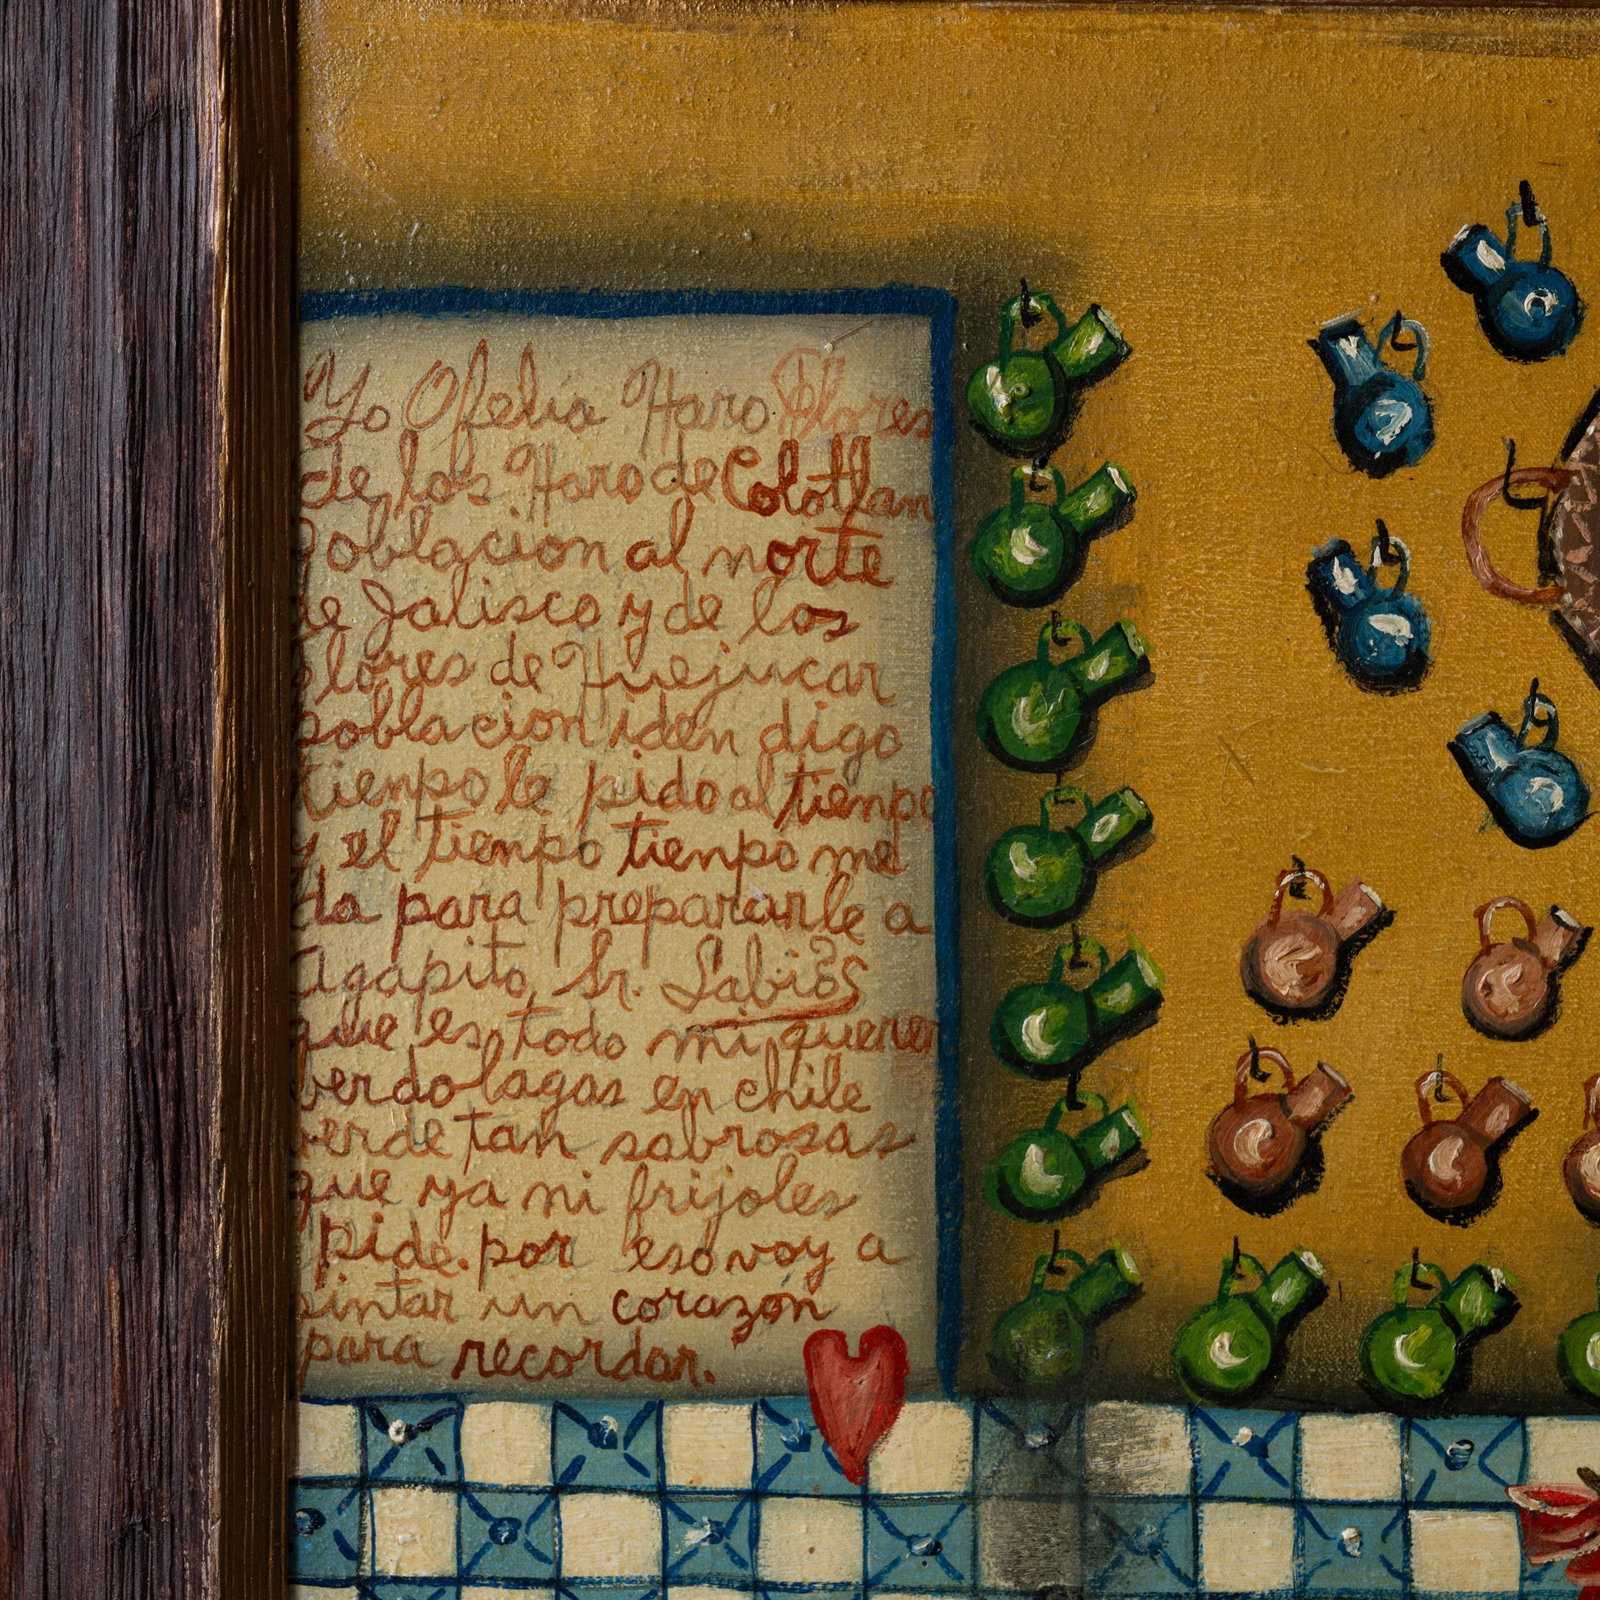 Yo Ofelia Haro Flores
de los Haro de Colotlan
Poblacion al norte
de Jalisco y de los
Flores de Huejucar
poblacion iden digo
tienpo le pido al tienpo
y el tienpo tienpo me
da para prepararle a
Agapito, Sr. Labios
que es todo mi querer
verdolagas en chile
verde tan sabrosas
que ya ni frijoles
pide. por eso voy a
pintar un corazon
para recordar.